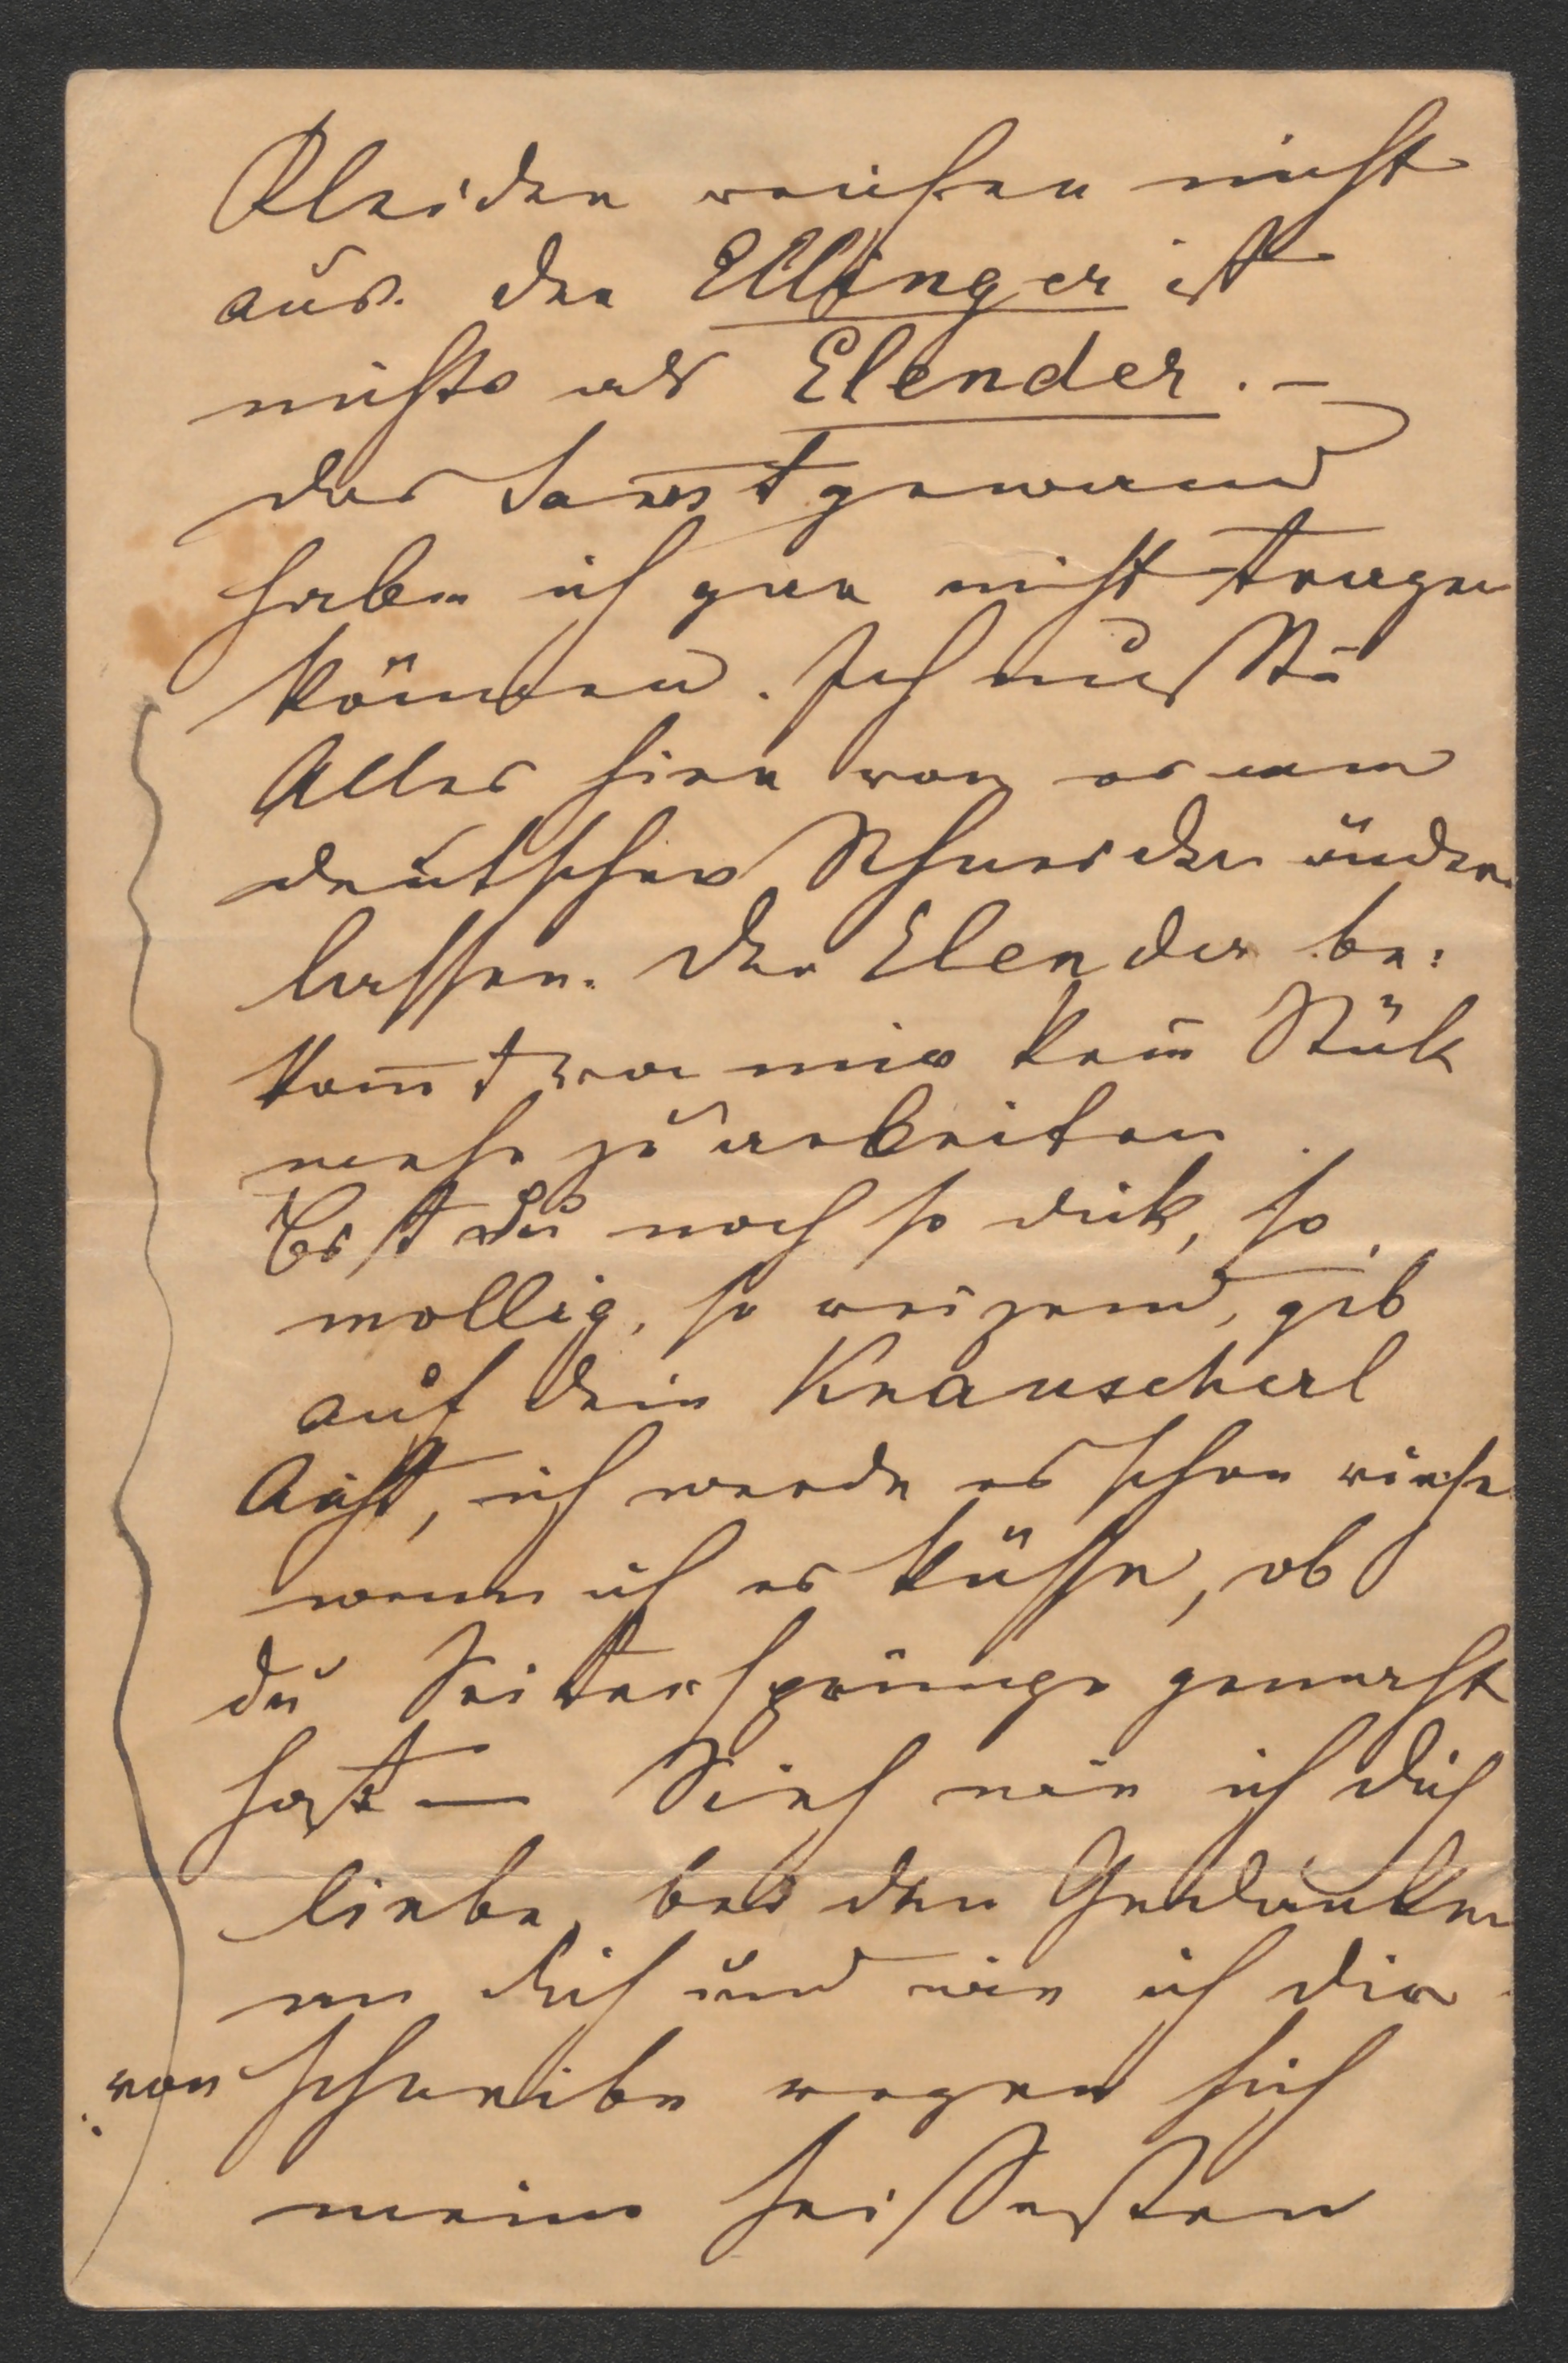 Kleider reichen nicht
aus. der Ellinger ist
nichts als Elender. –
das Samtgewand
habe ich gar nicht tragen
können. Ich mußte
Alles hier von einem
deutschen Schneider ändern
lassen. Der Elender be:
kom̅t von mir kein Stück
mehr zu arbeiten.
Bist du noch so dick, so
mollig, so reizend, gib
auf dein Krauscherl
Acht, ich werde es schon riechen
wenn ich es küsse, ob
du Seitensprünge gemacht
hast — Sieh wie ich dich
liebe, bei den Gedanken
an dich und wie ich dir
schreibe regen sich
meine heißesten
von